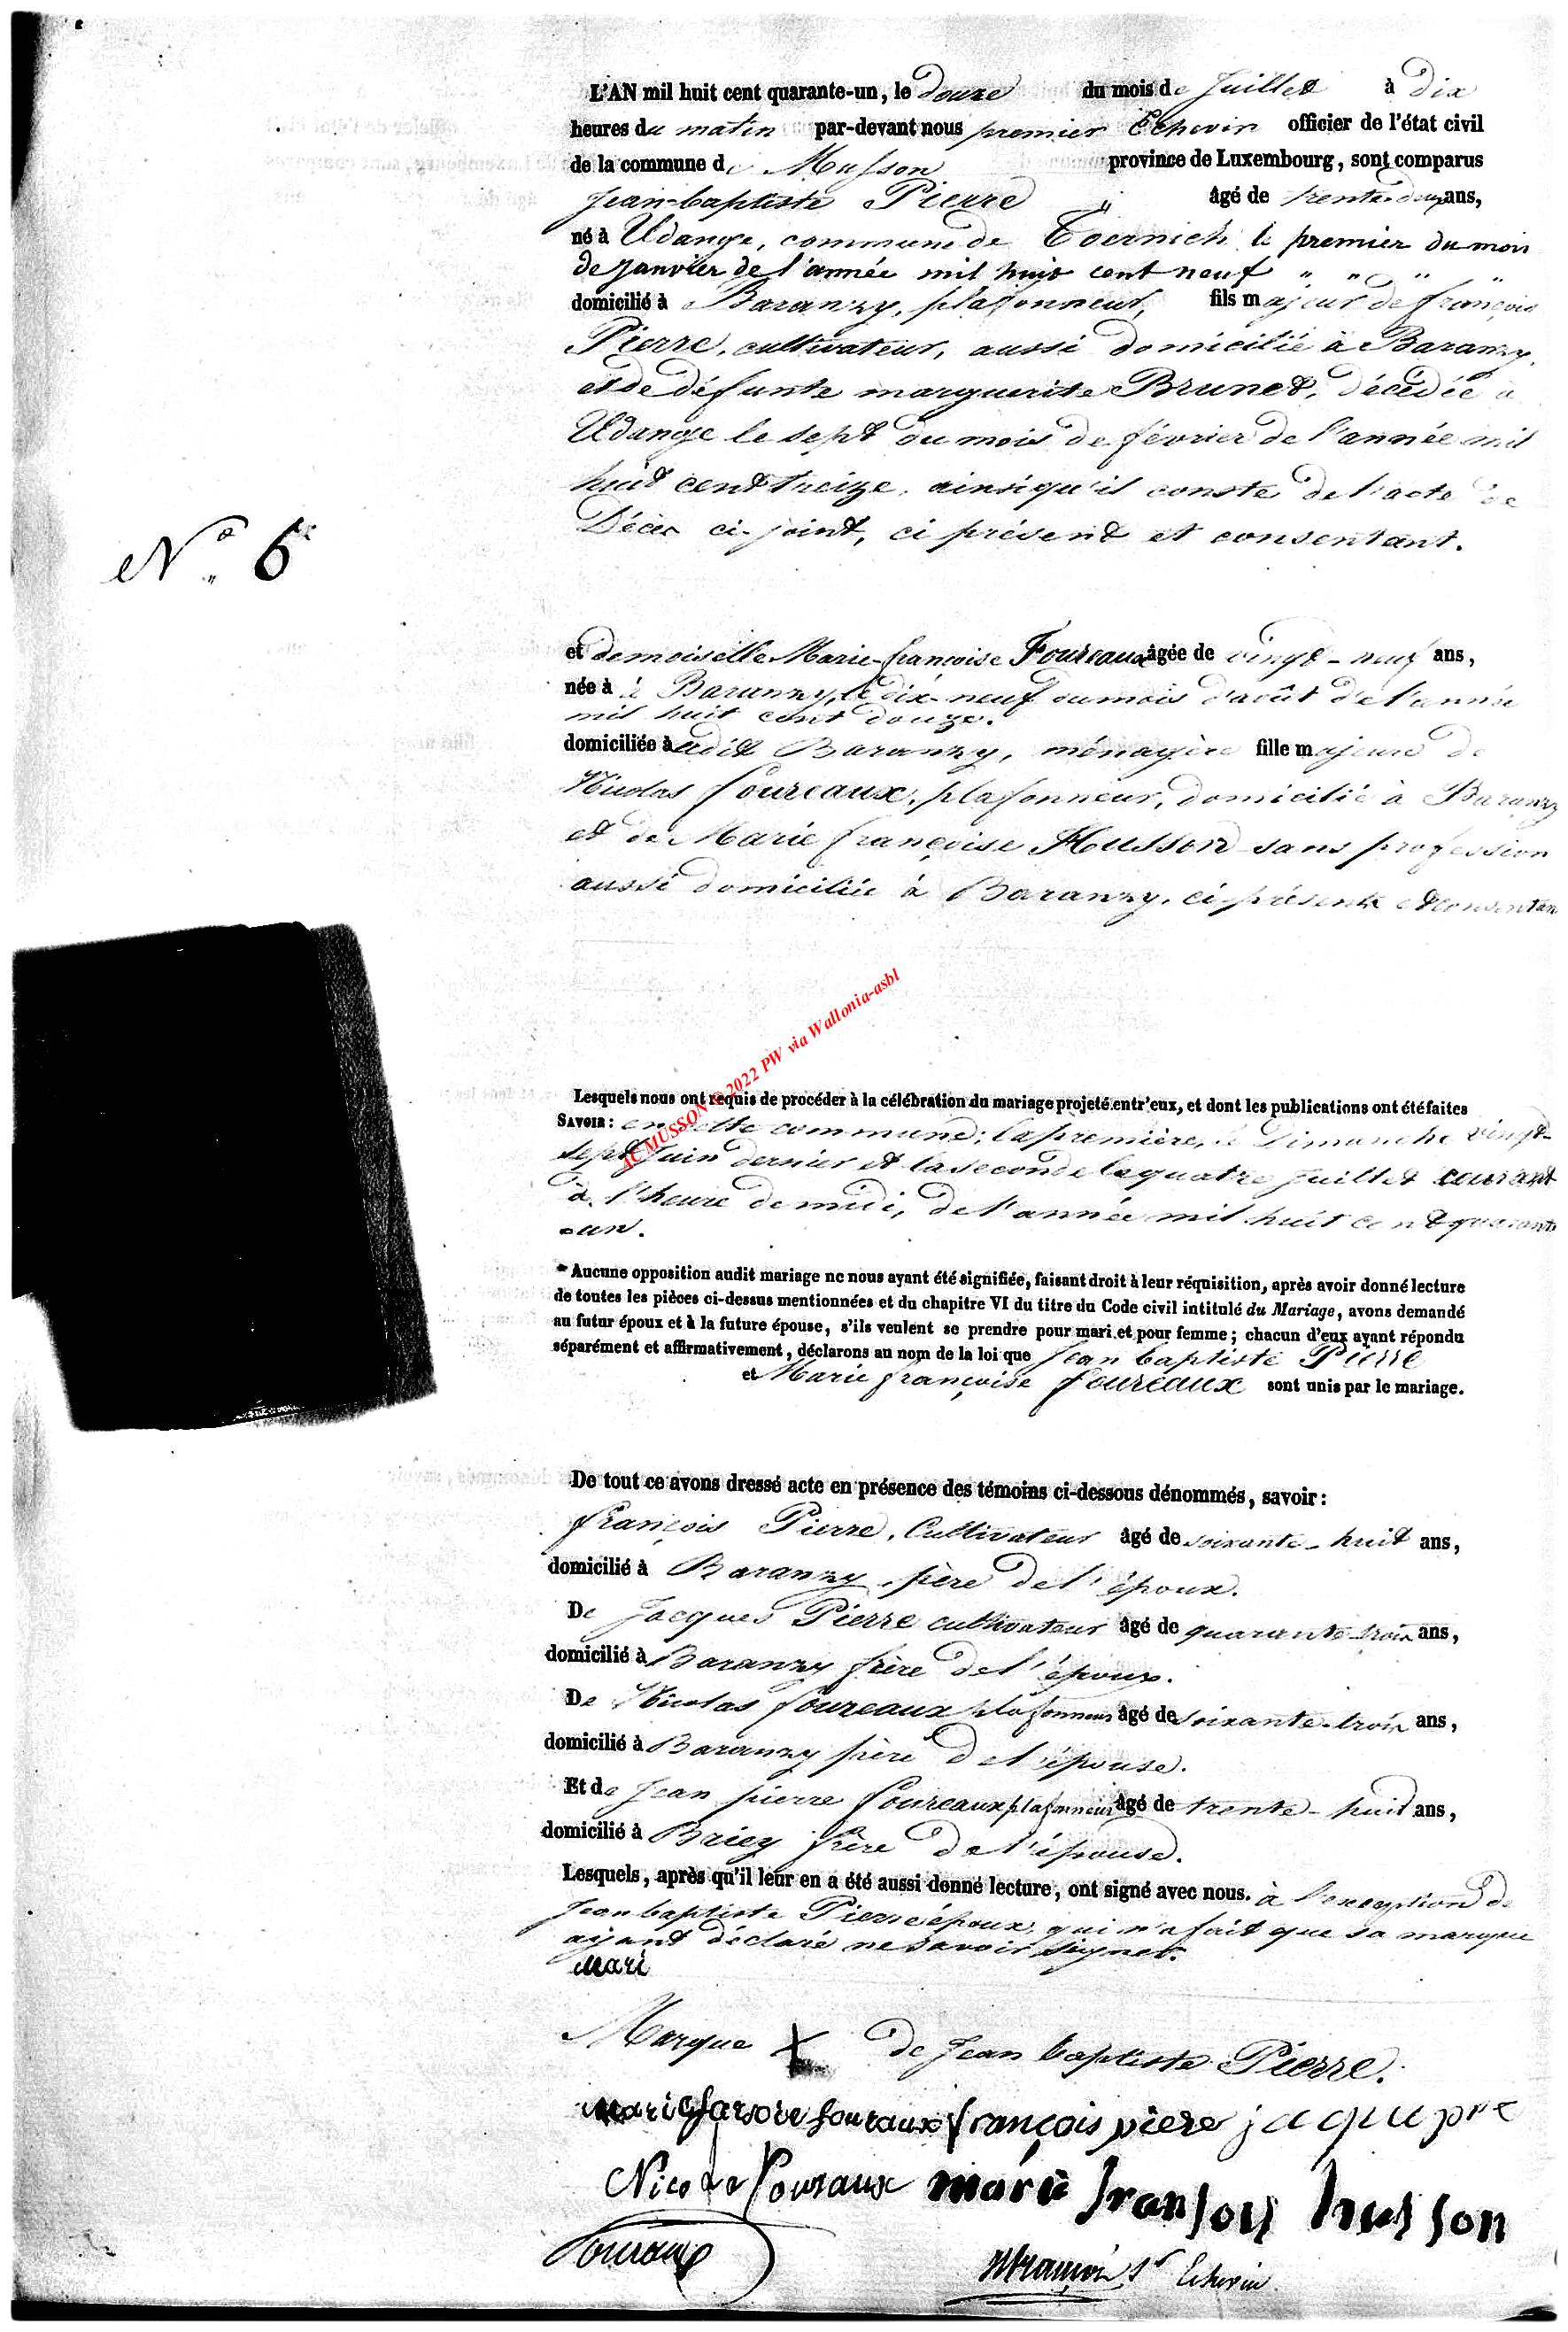 L'AN mil huit cent quarante-un, le douze du mois de Juillet à dix
heures du matin par-devant nous premier Echevin officier de l'état civil
de la commune de Musson province de Luxembourg, sont comparus
Jean-baptiste Pierre âgé de trente-deux ans,
né à Udange, commune de Toernich le premier du mois
de janvier de l'année mil huit cent neuf " " " "
domicilié à Baranzy, plafonneur, fils majeur de françois
Pierre, cultivateur, aussi domicilié à Baranzy,
et de défunte marguerite Brunet, décédée à
Udange le sept du mois de février de l'année mil
huit cent treize, ainsi qu'il conste de l'acte de
Décès ci-joint, ci présent et consentant.
N° 6
et demoiselle Marie-françoise Foureaux âgée de vingt-neuf ans,
née à à Baranzy, le dix-neuf du mois d'août de l'année
mil huit cent douze.
domiciliée à audit Baranzy, ménagère fille majeure de
Nicolas foureaux, plafonneur, domicilié à Baranzy
et de Marie françoise Husson sans profession
aussi domiciliée à Baranzy, ci présents et consentan
Lesquels nous ont requis de procéder à la célébration du mariage projeté entr'eux, et dont les publications ont été faites
SAVOIR: en cette commune; la première, le Dimanche vingt-
sept Juin dernier et la seconde le quatre juillet courant
à l'heure de midi, de l'année mil huit cent quarante
-un.
AC MUSSON © 2022 PW via Wallonia-asbl
Aucune opposition audit mariage ne nous ayant été signifiée, faisant droit à leur réquisition, après avoir donné lecture
de toutes les pièces ci-dessus mentionnées et du chapitre VI du titre du Code civil intitulé du Mariage, avons demandé
au futur époux et à la future épouse, s'ils veulent se prendre pour mari et pour femme; chacun d'eux ayant répondu
séparément et affirmativement, déclarons au nom de la loi que Jean baptiste Pierre
et Marie françoise foureaux sont unis par le mariage.
De tout ce avons dressé acte en présence des témoins ci-dessous dénommés, savoir:
françois Pierre, Cultivateur âgé de soixante-huit ans,
domicilié à Baranzy, père de l'époux.
De Jacques Pierre cultivateur âgé de quarante-trois ans,
domicilié à Baranzy frère de l'époux.
De Nicolas foureaux plafonneur âgé de soixante-trois ans,
domicilié à Baranzy père de l'épouse.
Et de Jean pierre foureaux plafonneur âgé de trente-huit ans,
domicilié à Briey frère de l'épouse.
Lesquels, après qu'il leur en a été aussi donné lecture, ont signé avec nous. à l'exception de
Jean baptiste Pierre époux, qui n'a fait que sa marque
ayant déclaré ne savoir signer.
Mari
Marque X de Jean baptiste Pierre.
françois piere jaque pre
Nicola fouraux marie fransois husson
fouraux
1r Echevin